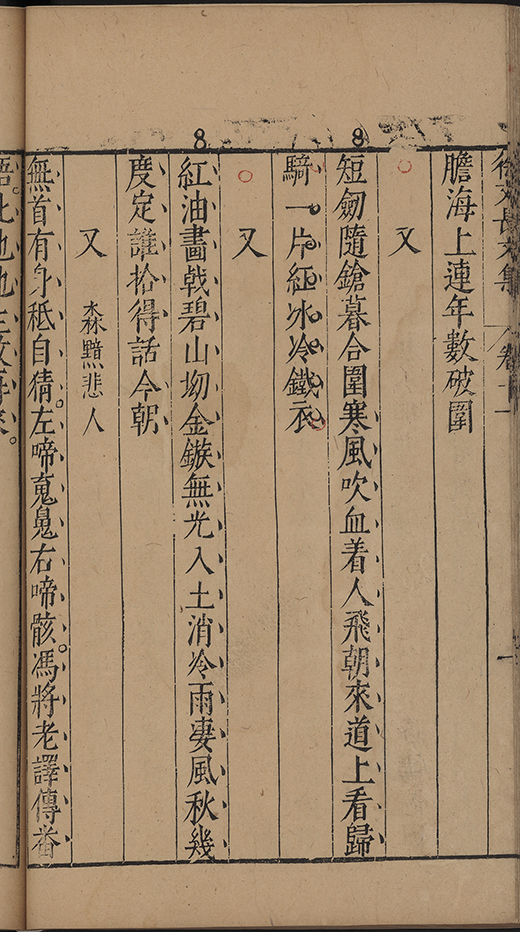 徐文長文集 卷十一
膽海上連年數破圍
又
短劒隨鎗暮合圍寒風吹血着人飛朝來道上看歸
騎一片紅冰冷鐵衣
又
紅油畫戟碧山坳金鏃無光入土消冷雨凄風秋幾
度定誰拾得話今朝
又 森黯悲人
無首有身秪自猜左啼魂魄右啼骸馮將老譯傳番
語此地他生敢再來